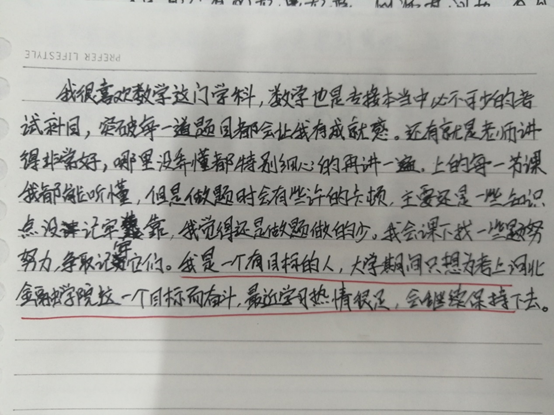 PREFER LIFESTYLE
我很喜欢数学这门学科，数学也是专接本当中必不可少的考
试科目，突破每一道题目都会让我有成就感。还有就是老师讲
得非常好，哪里没弄懂都特别细心的再讲一遍。上的每一节课
我都能听懂，但是做题时会有些许的卡顿，主要还是一些知识
点没记牢靠，我觉得还是做题做的少。我会课下找一些题努
努力，争取记牢它们。我是一个有目标的人，大学期间只想为考上河北
金融学院这一个目标而奋斗，最近学习热情很足，会继续保持下去。